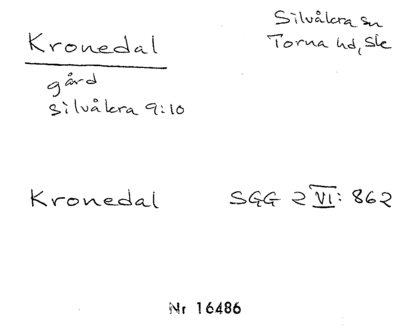 Kronedal
Silvåkra sn
Torna hd, Sk
gård
Silvåkra 9:10
Kronedal
SGG 2 VI: 862
Nr 16486